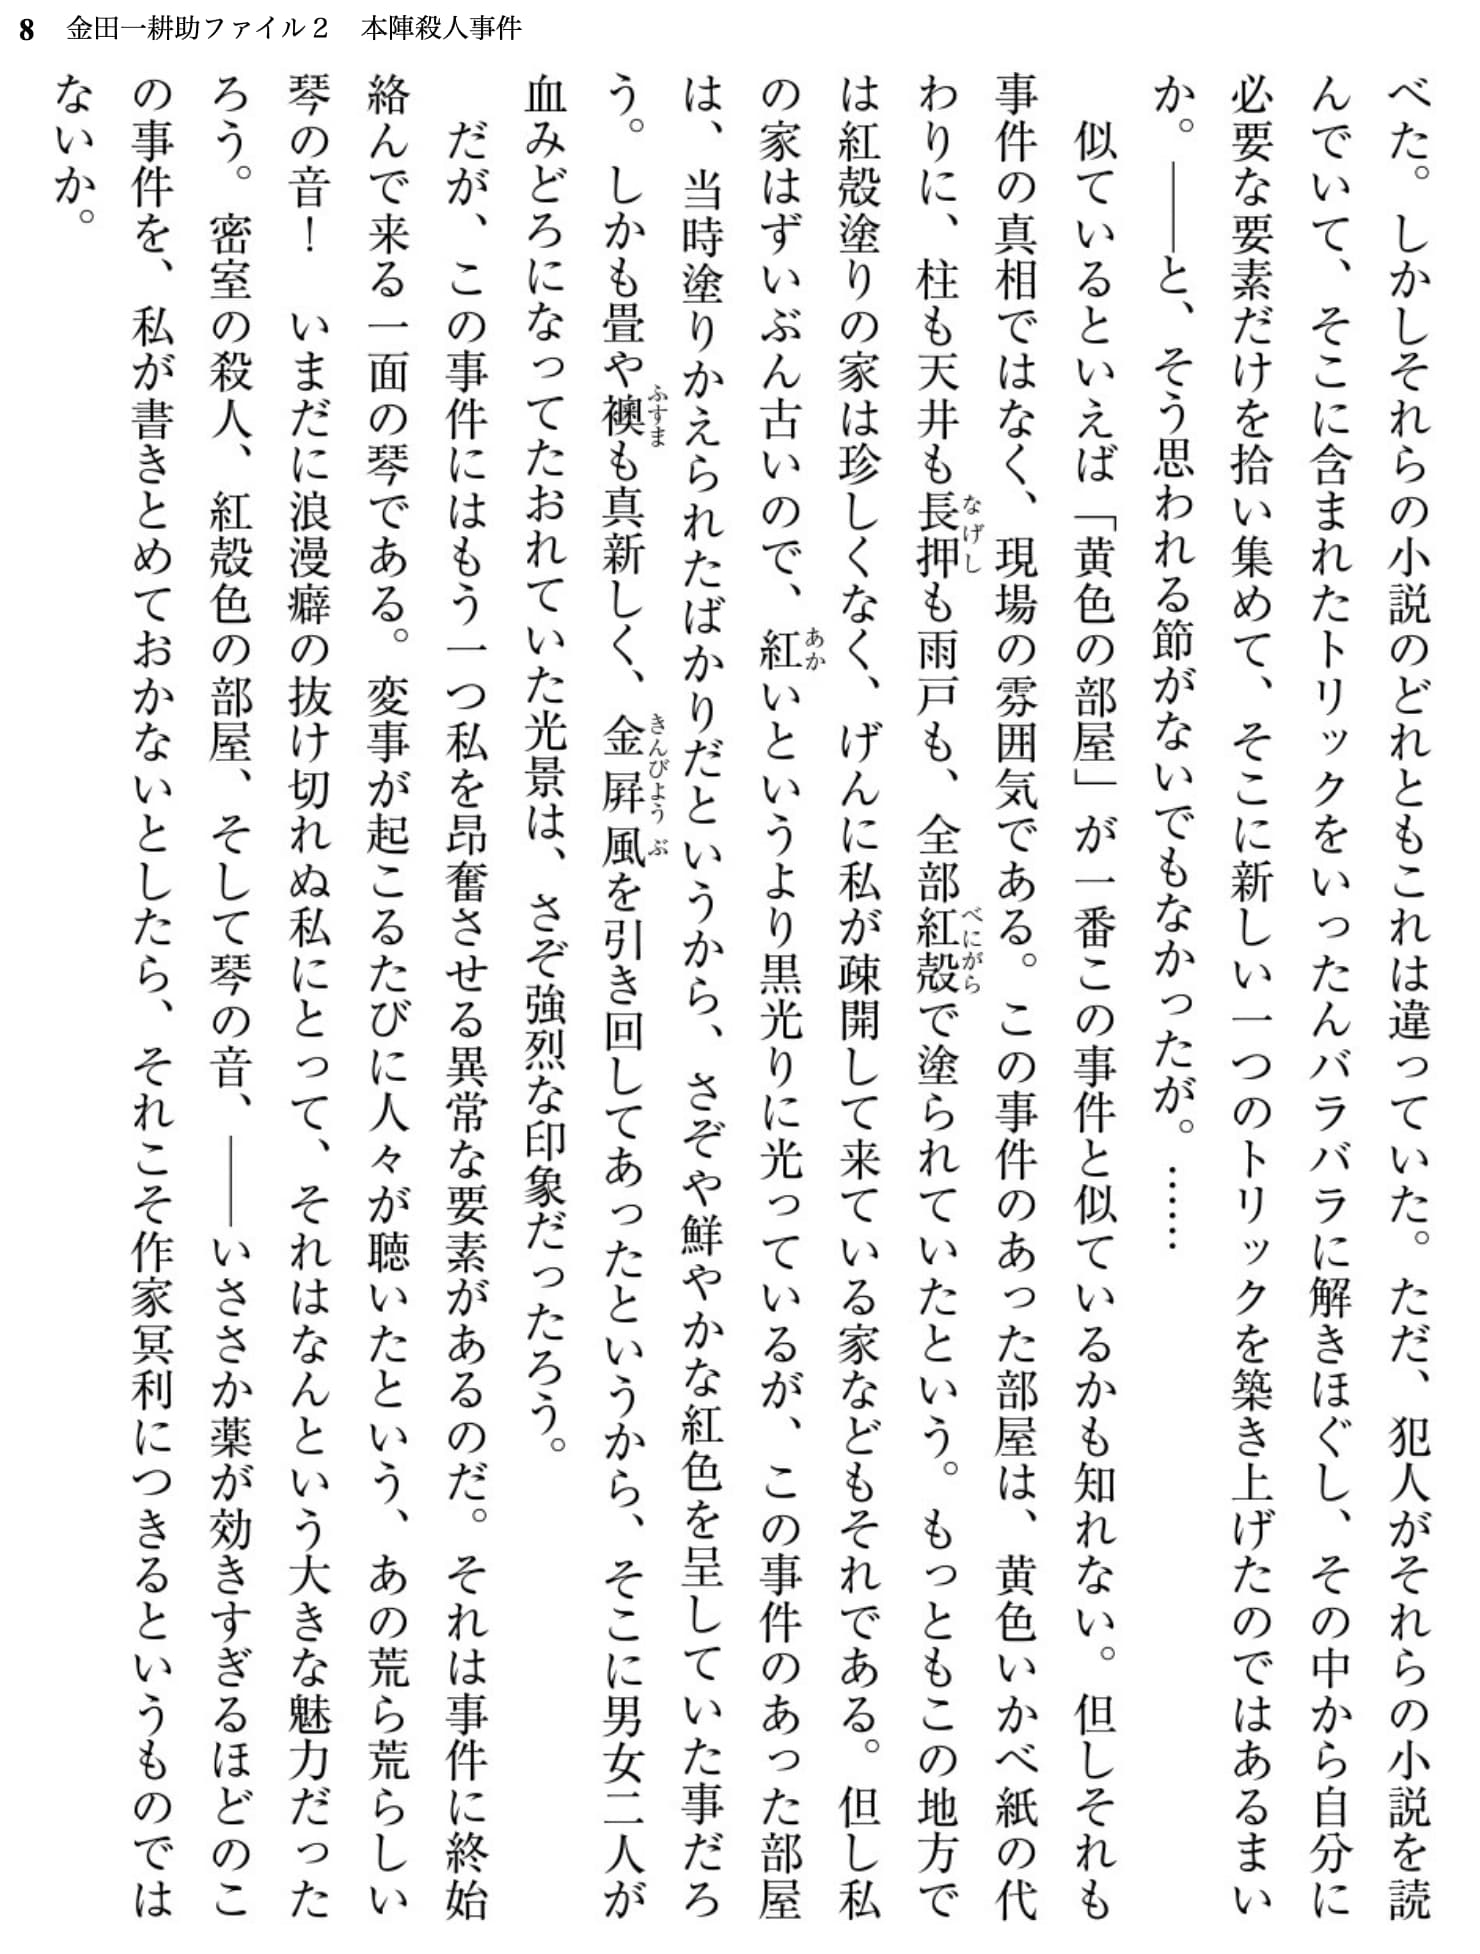 8 金田一耕助ファイル2 本陣殺人事件
べた。しかしそれらの小説のどれともこれは違っていた。ただ、犯人がそれらの小説を読
んでいて、そこに含まれたトリックをいったんバラバラに解きほぐし、その中から自分に
必要な要素だけを拾い集めて、そこに新しい一つのトリックを築き上げたのではあるまい
か。――と、そう思われる節がないでもなかったが。……
　似ているといえば「黄色の部屋」が一番この事件と似ているかも知れない。但しそれも
事件の真相ではなく、現場の雰囲気である。この事件のあった部屋は、黄色いかべ紙の代
わりに、柱も天井も長押も雨戸も、全部紅殻で塗られていたという。もっともこの地方で
は紅殻塗りの家は珍しくなく、げんに私が疎開して来ている家などもそれである。但し私
の家はずいぶん古いので、紅いというより黒光りに光っているが、この事件のあった部屋
は、当時塗りかえられたばかりだというから、さぞや鮮やかな紅色を呈していた事だろ
う。しかも畳や襖も真新しく、金屛風を引き回してあったというから、そこに男女二人が
血みどろになってたおれていた光景は、さぞ強烈な印象だったろう。
　だが、この事件にはもう一つ私を昂奮させる異常な要素があるのだ。それは事件に終始
絡んで来る一面の琴である。変事が起こるたびに人々が聴いたという、あの荒ら荒らしい
琴の音！　いまだに浪漫癖の抜け切れぬ私にとって、それはなんという大きな魅力だった
ろう。密室の殺人、紅殻色の部屋、そして琴の音、――いささか薬が効きすぎるほどのこ
の事件を、私が書きとめておかないとしたら、それこそ作家冥利につきるというものでは
ないか。